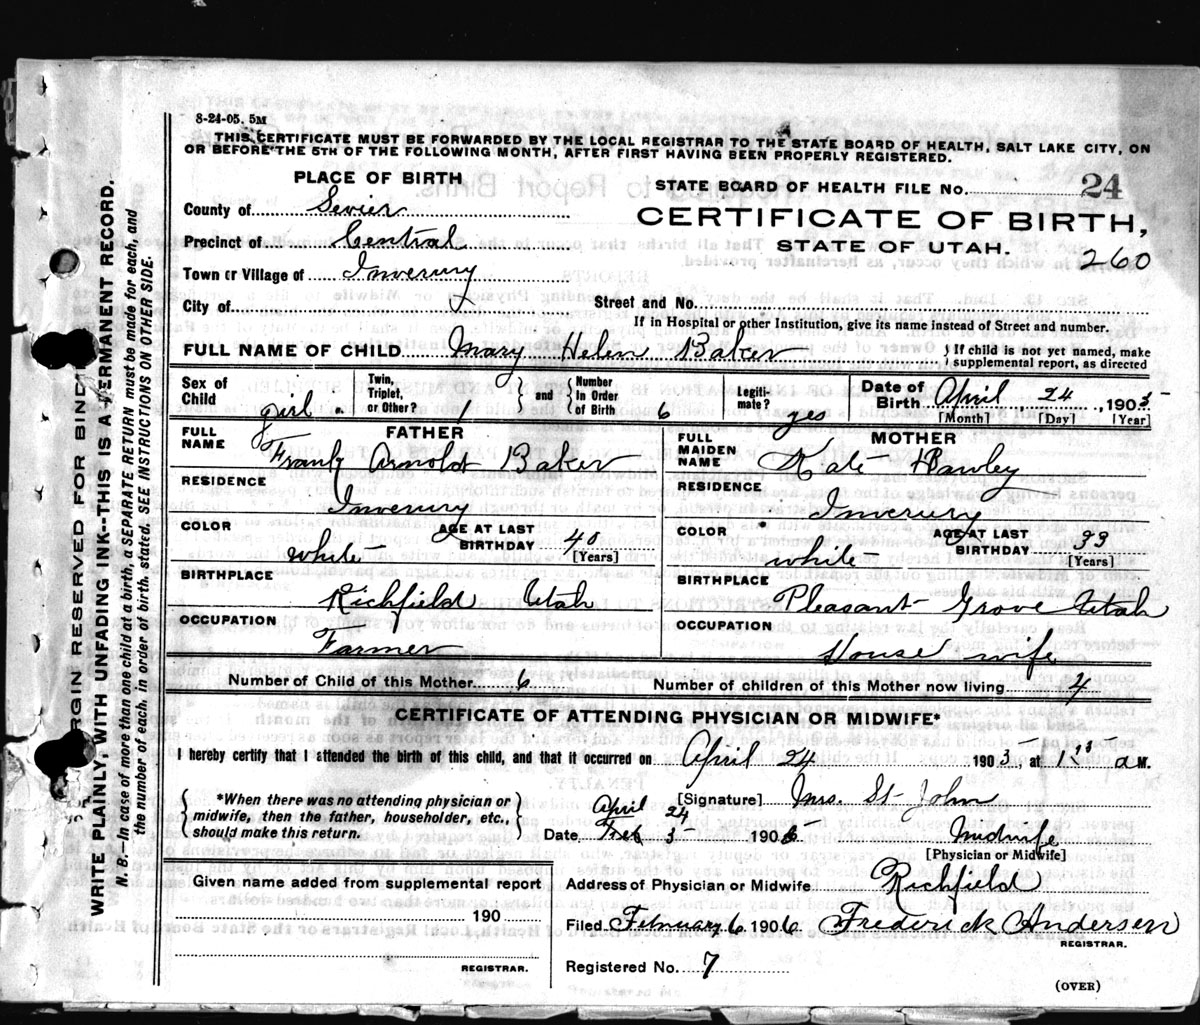 8-24-05. 5M
THIS CERTIFICATE MUST BE FORWARDED BY THE LOCAL REGISTRAR TO THE STATE BOARD OF HEALTH, SALT LAKE CITY, ON
OR BEFORE THE 5TH OF THE FOLLOWING MONTH, AFTER FIRST HAVING BEEN PROPERLY REGISTERED.
PLACE OF BIRTH
County of Sevier
Precinct of Central
Town or Village of Inverury
City of
STATE BOARD OF HEALTH FILE NO. 24
CERTIFICATE OF BIRTH,
STATE OF UTAH.
260
Street and No.
If in Hospital or other Institution, give its name instead of Street and number.
FULL NAME OF CHILD Mary Helen Baker } If child is not yet named, make
supplemental report, as directed
Sex of Child girl. Twin, Triplet, or Other? 1 } and { Number In Order of Birth 6 Legiti-mate? yes Date of Birth April 24, 1905
[Month] [Day] [Year]
FATHER
FULL NAME Frank Arnold Baker
RESIDENCE Inverury
COLOR white AGE AT LAST BIRTHDAY 40 [Years]
BIRTHPLACE Richfield Utah
OCCUPATION Farmer
MOTHER
FULL MAIDEN NAME Kate Hawley
RESIDENCE Inverury
COLOR white AGE AT LAST BIRTHDAY 33 [Years]
BIRTHPLACE Pleasant Grove Utah
OCCUPATION House wife
Number of Child of this Mother 6 Number of children of this Mother now living 4
CERTIFICATE OF ATTENDING PHYSICIAN OR MIDWIFE*
I hereby certify that I attended the birth of this child, and that it occurred on April 24 1905, at a M.
{ *When there was no attending physician or
midwife, then the father, householder, etc.,
should make this return. }
[Signature] Mrs. St John
April 24
Date Feb 5 1906
Midwife
[Physician or Midwife]
Given name added from supplemental report
190
REGISTRAR.
Address of Physician or Midwife Richfield
Filed February 6, 1906 Frederick Andersen
REGISTRAR.
Registered No. 7
(OVER)
MARGIN RESERVED FOR BINDING
WRITE PLAINLY, WITH UNFADING INK--THIS IS A PERMANENT RECORD.
N. B.—In case of more than one child at a birth, a SEPARATE RETURN must be made for each, and
the number of each, in order of birth, stated. SEE INSTRUCTIONS ON OTHER SIDE.